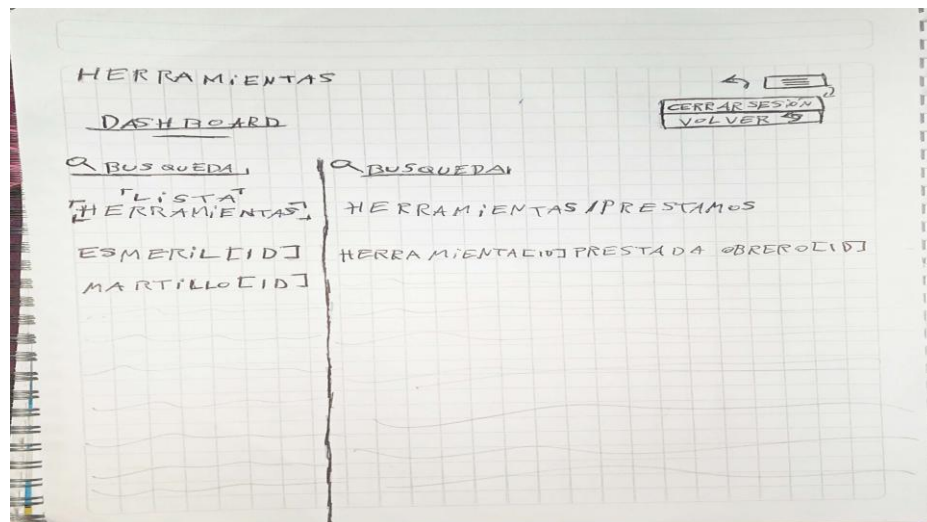 HERRAMIENTAS
CERRAR SESIÓN
DASHBOARD
VOLVER
BUSQUEDA
LISTA
HERRAMIENTAS
ESMERIL [ID]
MARTILLO [ID]
BUSQUEDA
HERRAMIENTAS/PRESTAMOS
HERRAMIENTA[ID] PRESTADA OBRERO[ID]